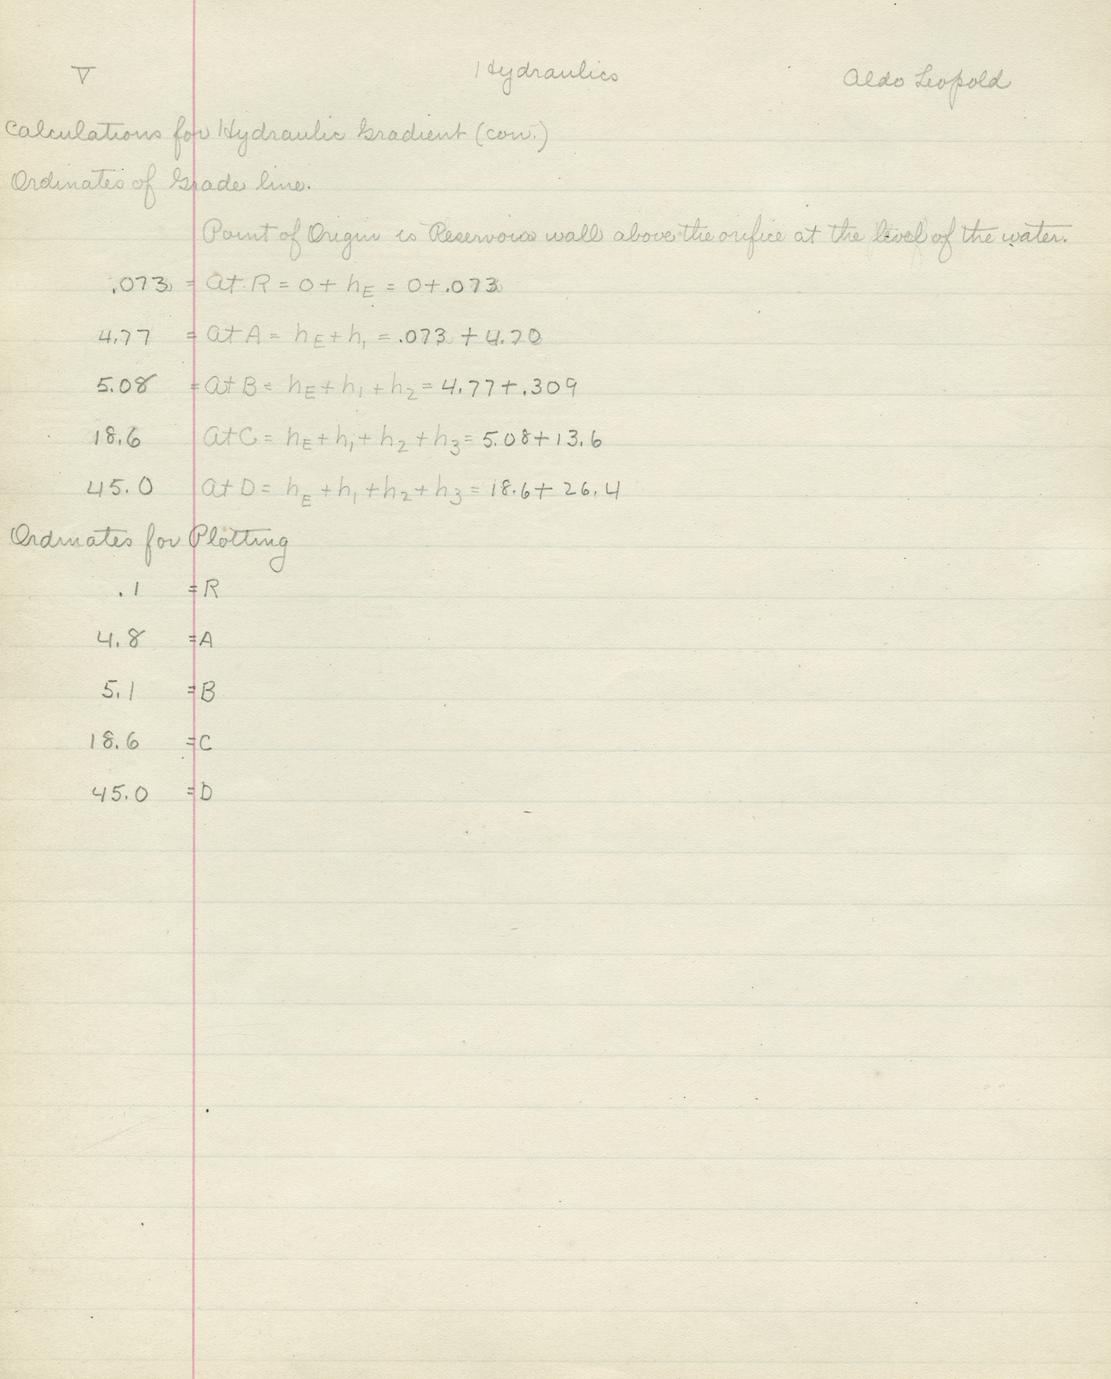 V Hydraulics Aldo Leopold
Calculations for Hydraulic Gradient (con.)
Ordinates of Grade line.
Point of Origin is Reservoir wall above the orifice at the level of the water.
.073 = at R = 0 + hE = 0+.073
4.77 = at A = hE + h1 = .073 + 4.70
5.08 = at B = hE + h1 + h2 = 4.77+.309
18.6 at C = hE + h1 + h2 + h3 = 5.08+13.6
45.0 at D = hE + h1 + h2 + h3 = 18.6+ 26.4
Ordinates for Plotting
.1 = R
4.8 = A
5.1 = B
18.6 = C
45.0 = D